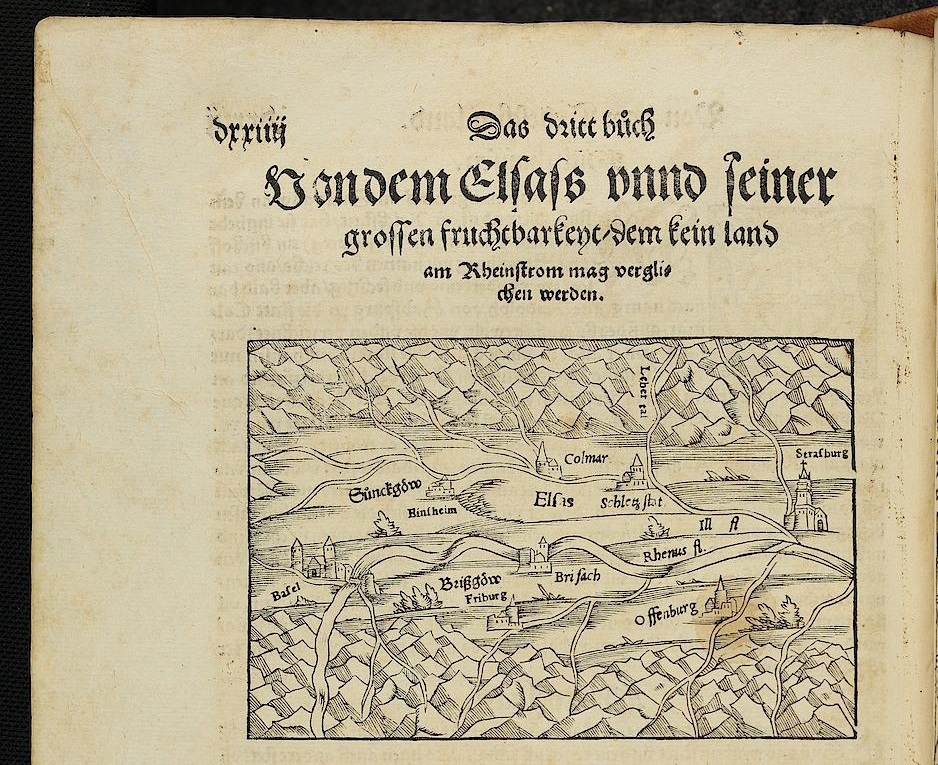 dxxiiij
Das dritt bůch
Von dem Elsass vnnd seiner
grossen fruchtbarkeyt/dem kein land
am Rheinstrom mag vergli⸗
chen werden.
Leber tal
Strasburg
Colmar
Sůnckgöw
Elsas
Schletzstat
Einsheim
Ill fl
Rhenus fl.
Basel
Brißgöw
Brisach
Friburg
Offenburg